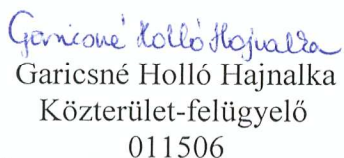 Garicsné Holló Hajnalka
Garicsné Holló Hajnalka
Közterület-felügyelő
011506